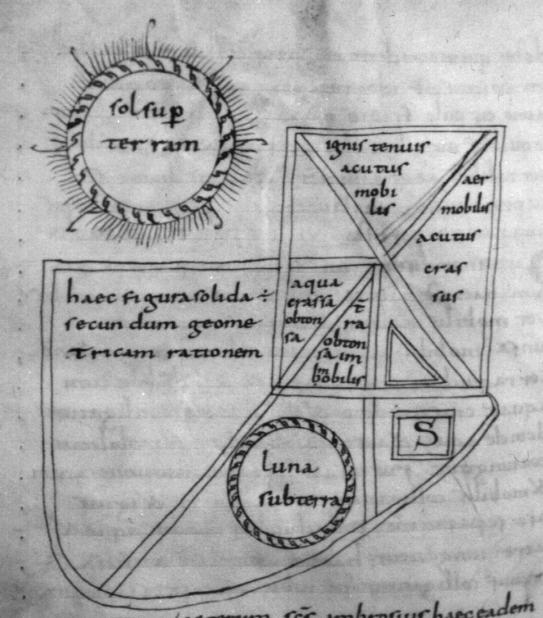 sol sup
ter ram
ignis tenuis
acutus
mobi
lis
aer
mobilis
acutus
cras
sus
haec figura solida ÷
secundum geome
tricam rationem
aqua
crassa
obton
sa
t̄
ra
obton
sa im
mobilis
luna
subterra
S
ambrosius haec eadem